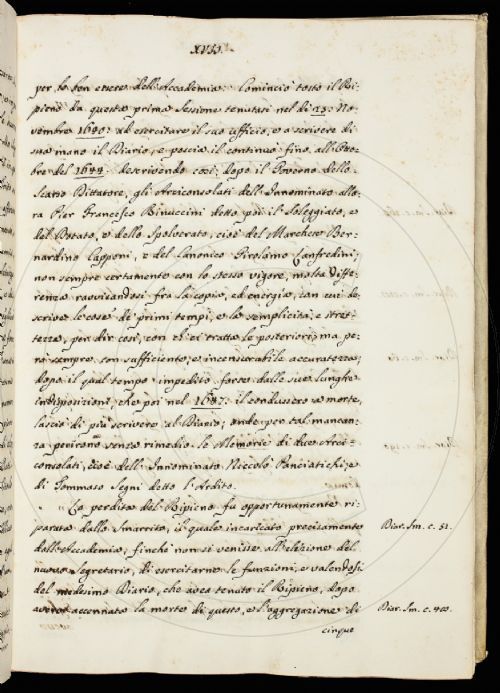 XVII.
per lo ben essere dell'Accademia: Cominciò tosto il Ri-
pieno da questa prima Sessione tenutasi nel dì 13: No-
vembre 1640: ad esercitare il suo uffizio, e a scrivere di
sua mano il Diario, e poscia il continuò fino all'Otto-
bre del 1644: descrivendo così, dopo il Governo dello
Scarso Dittatore, gli Arciconsolati dell'Innominato allo-
ra Pier Francesco Rinuccini detto poi il Soleggiato, e
del Potato, e dello Spolverato, cioè del Marchese Ber-
nardino Capponi, e del Canonico Girolamo Lanfredini;
non sempre certamente con lo stesso vigore, molta diffe-
renza ravvisandosi fra la copia, ed energia, con cui de-
scrive le cose de' primi tempi, e la semplicità, e stret-
tezza, per dir così, con ch'ei tratta le posteriori, ma pe-
rò sempre con sufficiente, e incensurabile accuratezza,
dopo il qual tempo impedito forse dalle sue lunghe
indisposizioni, che poi nel 1647: il condussero a morte,
lasciò di più scrivere al Diario; onde per tal mancan-
za perirono senza rimedio le Memorie di due Arci-
consolati, cioè dell'Innominato Niccolò Panciatichi, e
di Tommaso Segni detto l'Ardito.
La perdita del Ripieno fu opportunamente ri-
parata dallo Smarrito, il quale incaricato precisamente
dall'Accademia, finchè non si venisse all'elezione del
nuovo Segretario, di esercitarne le funzioni, e valendosi
del medesimo Diario, che avea tenuto il Ripieno, dopo
avere accennato la morte di questo, e l'aggregazione di
cinque
Diar. Sm. c. 51.
Diar. Sm. c.